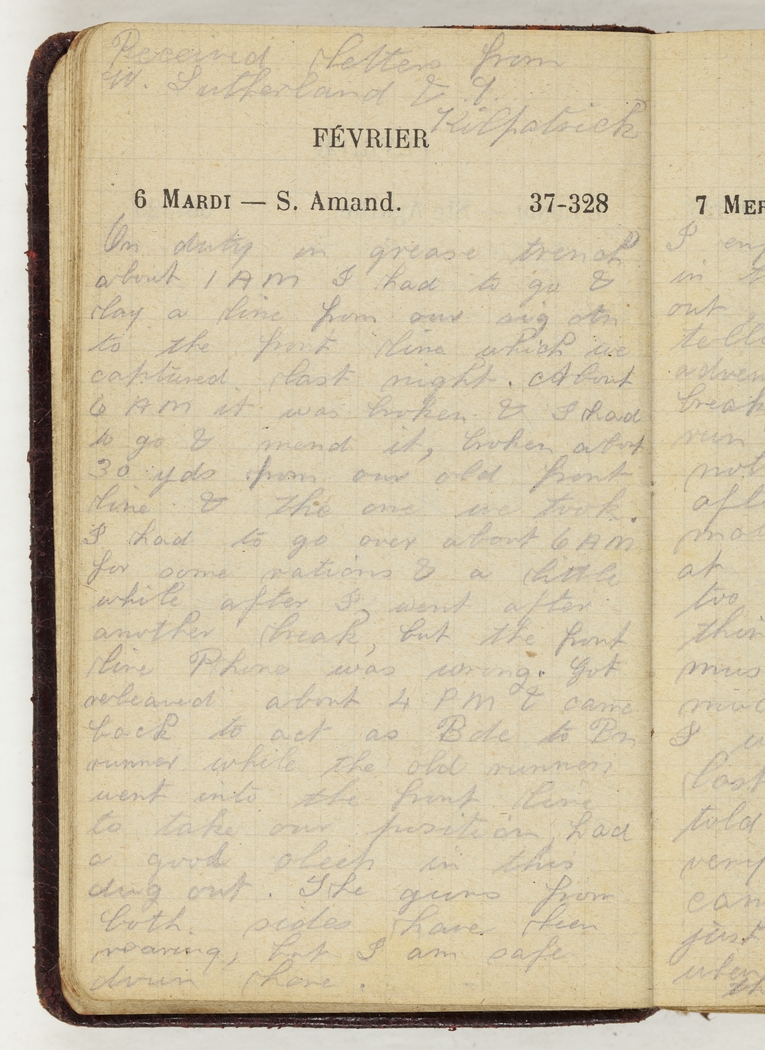 Received letters from
W. Sutherland & J.
Kilpatrick
FÉVRIER
6 MARDI — S. Amand. 37-328
On duty in grease trench
about 1 AM I had to go &
lay a line from our sig stn
to the front line which we
captured last night. About
6 AM it was broken & I had
to go & mend it, broken about
30 yds from our old front
line & the one we took.
I had to go over about 6 AM
for some rations & a little
while after I went after
another break, but the front
line Phone was wrong. Got
releaved about 4 PM & came
back to act as Bde to Bn
runner while the old runners
went into the front line
to take our position, had
a good sleep in this
dug out. The guns from
both sides have been
roaring, but I am safe
down here.
7 MER
I
in
out
tell
adven
break
run
not
aft
mat
at
too
thin
mus
I
last
told
very
cam
just
when